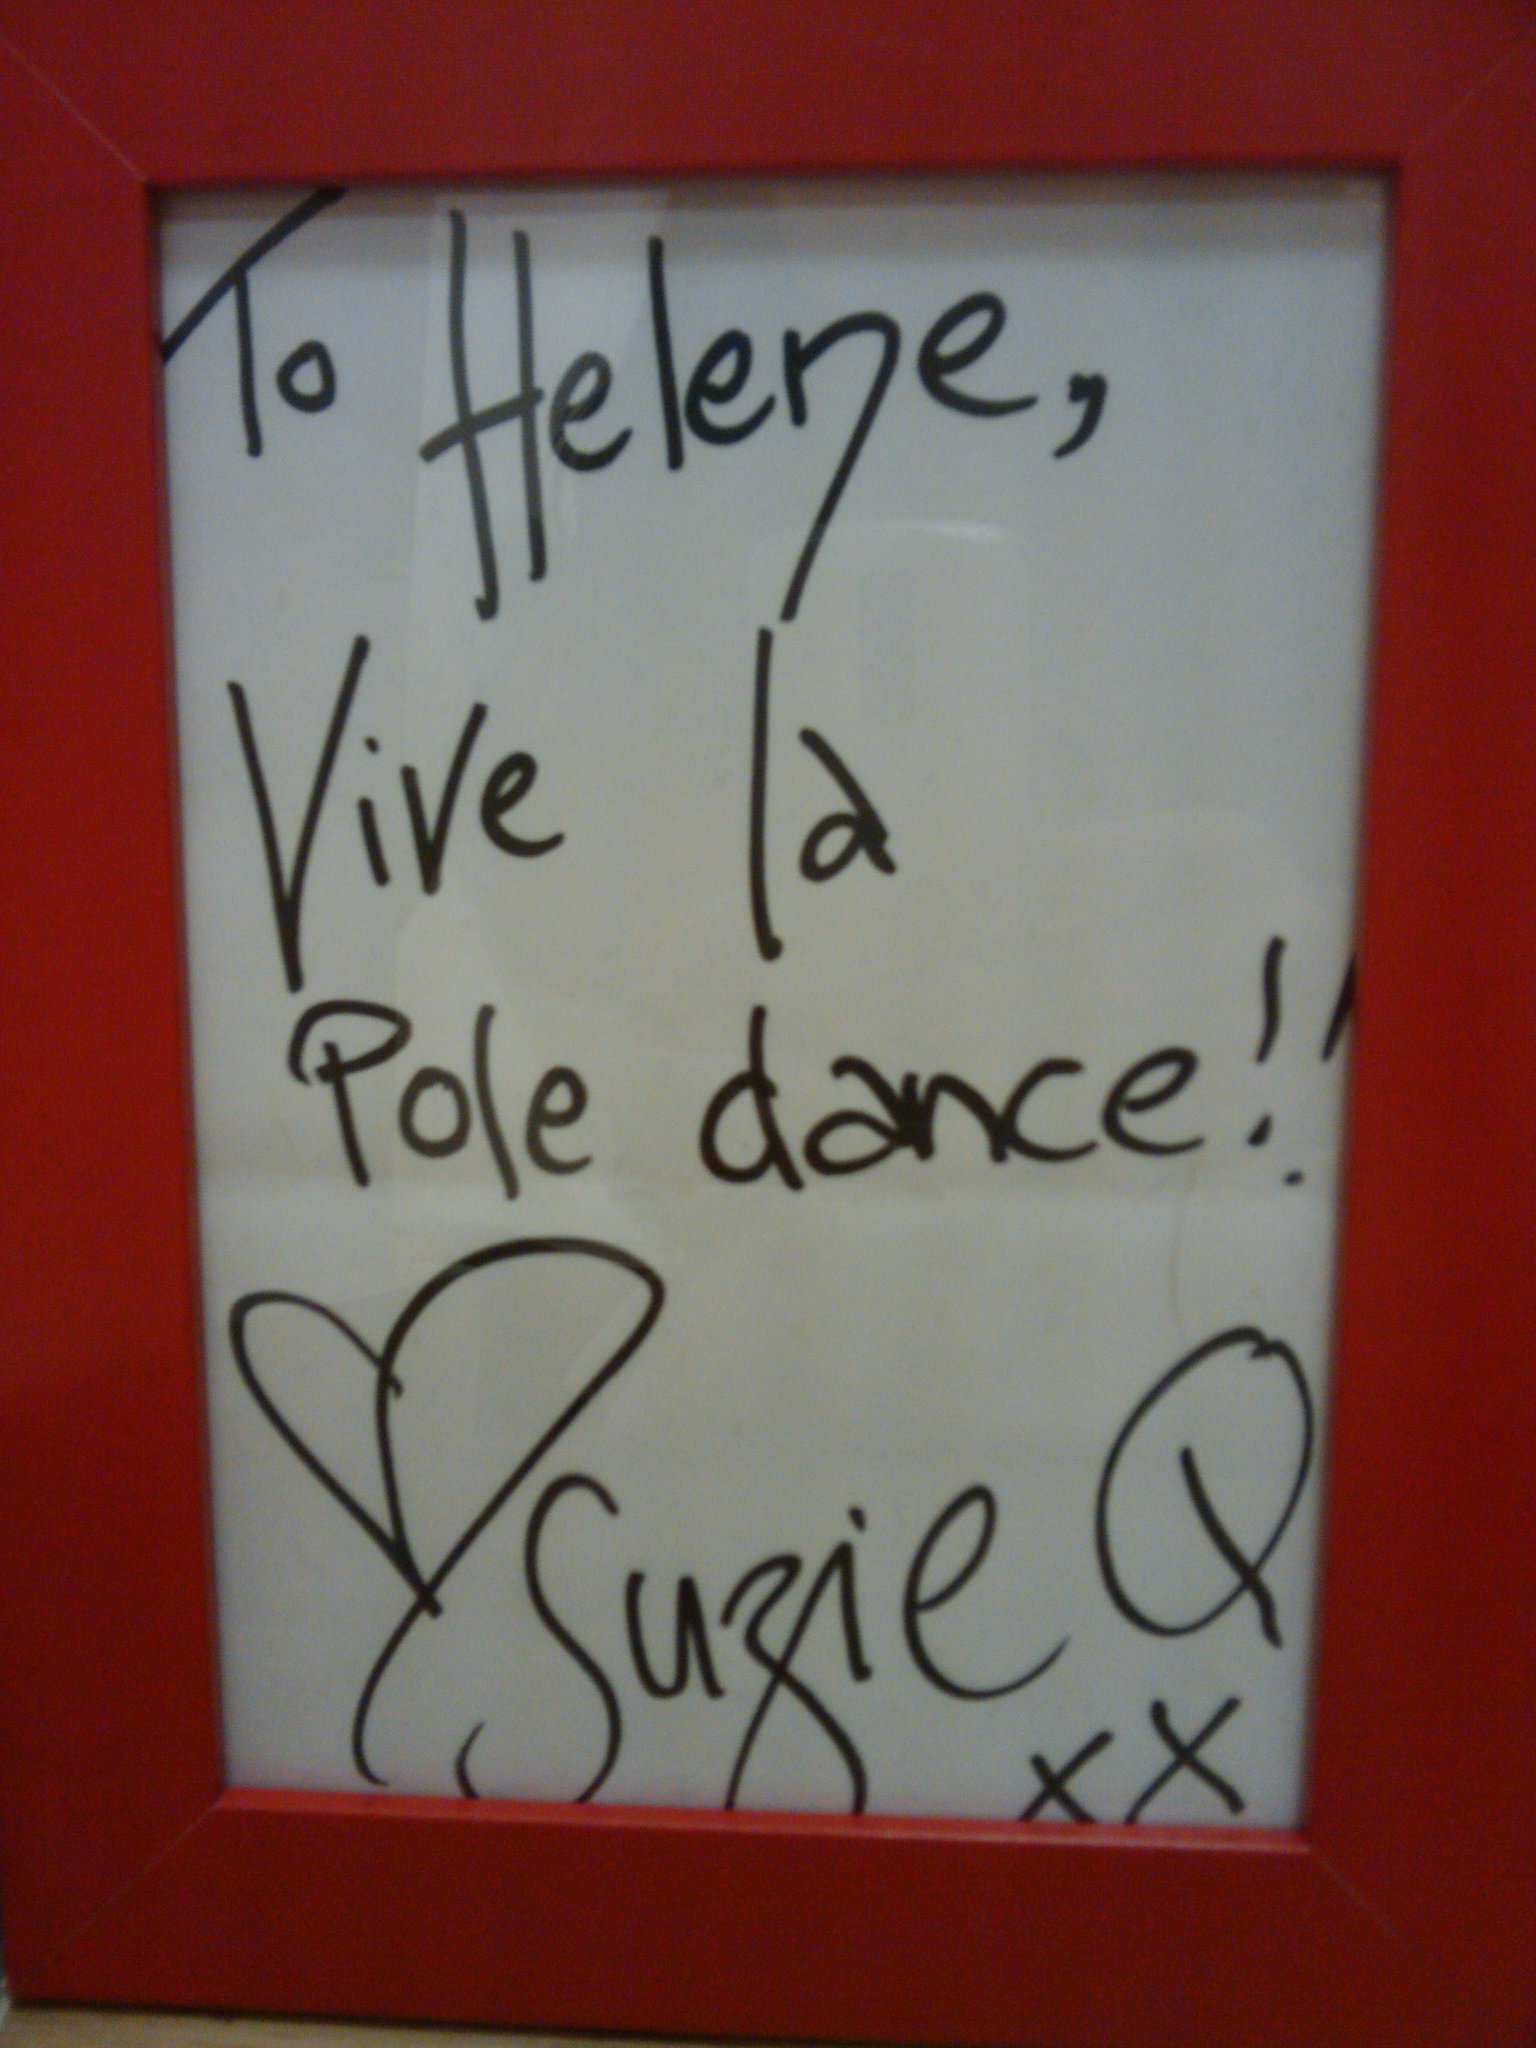 To Helene,
Vive la
Pole dance!!
♡ Suzie Q
xx